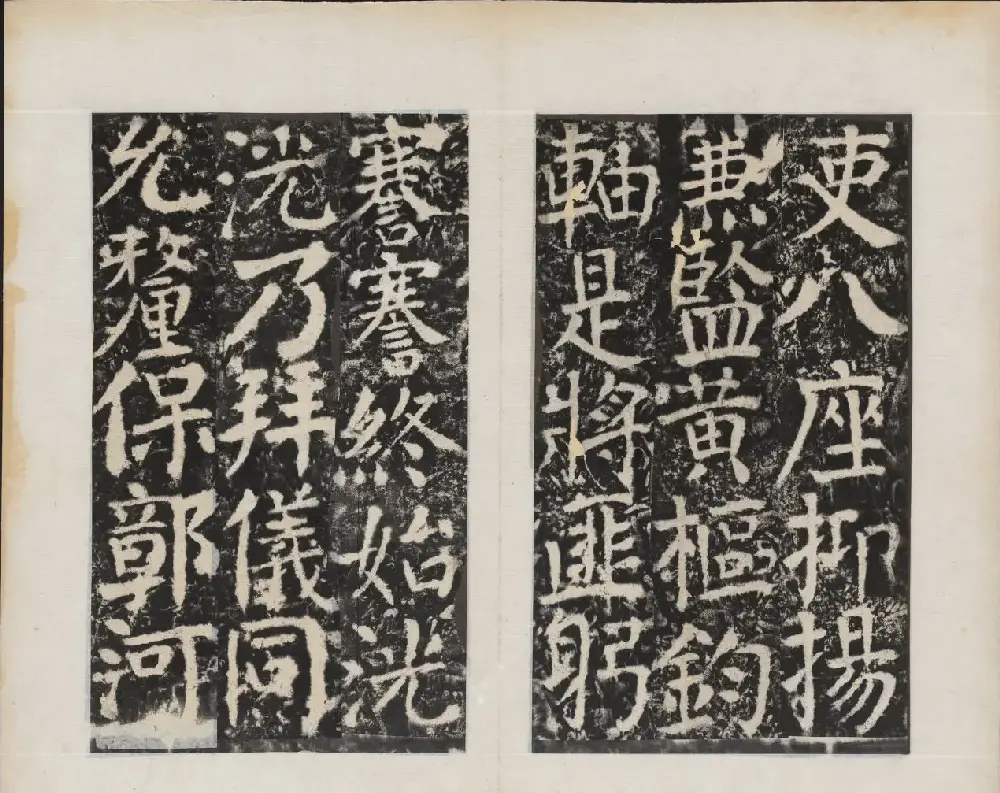 吏八座抑揚
兼監黃樞鈞
軸是將匪躬
謇謇終始洸
洸乃拜儀同
允釐保鄣河